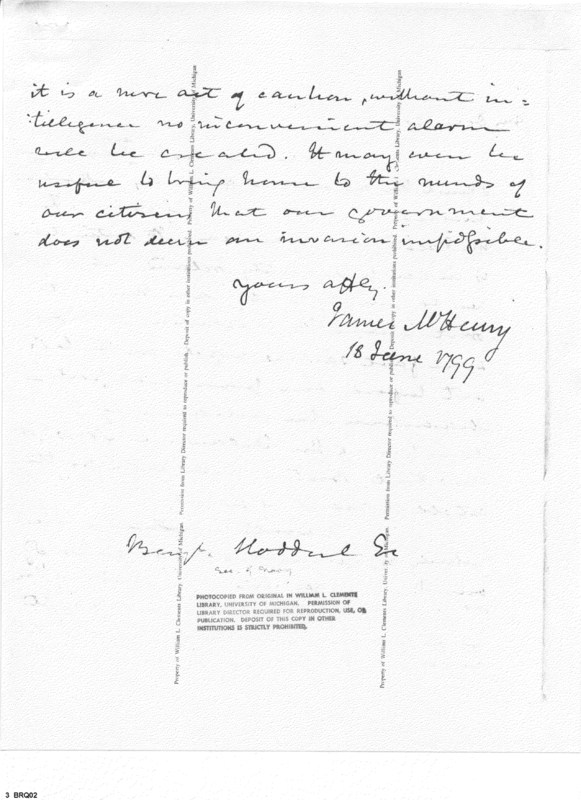 it is a mere act of caution, without in=
telligence no inconvenient alarm
will be created. It may even be
useful to bring home to the minds of
our citizens that our government
does not deem an invasion impossible.
yours affly.
James McHenry
18 June 1799
Benj. Stoddert Es
Sec. of Navy
PHOTOCOPIED FROM ORIGINAL IN WILLIAM L. CLEMENTS
LIBRARY, UNIVERSITY OF MICHIGAN. PERMISSION OF
LIBRARY DIRECTOR REQUIRED FOR REPRODUCTION, USE, OR
PUBLICATION. DEPOSIT OF THIS COPY IN OTHER
INSTITUTIONS IS STRICTLY PROHIBITED.
Property of William L. Clements Library, University of Michigan Permission from Library Director required to reproduce or publish. Deposit of copy in other institutions prohibited. Property of William L. Clements Library, University of Michigan
Property of William L. Clements Library, University of Michigan Permission from Library Director required to reproduce or publish. Deposit of copy in other institutions prohibited. Property of William L. Clements Library, University of Michigan
3 BRQ02